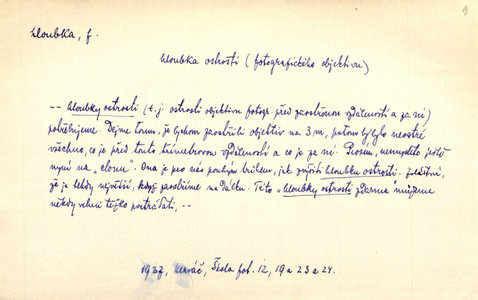 9
hloubka, f.
hloubka ostrosti (fotografického objektivu)
-- hloubky ostrosti (t. j. ostrosti objektivu fotogr. před zaostřenou vzdáleností a za ní)
potřebujeme. Dejme tomu, že bychom zaostřili objektiv na 3 m, potom by bylo neostré
všechno, co je před touto třímetrovou vzdáleností a co je za ní. Prosím, nemyslete ještě
nyní na „clonu". Ona je pro nás pouhým klíčem, jak zvýšiti hloubku ostrosti. Zvláštní,
že je tehdy největší, když zaostříme na dálku. Této „hloubky ostrosti zdarma" můžeme
někdy velmi těžko postrádati, --
1937, Škola fot. 12, 19 a 23 a 24.